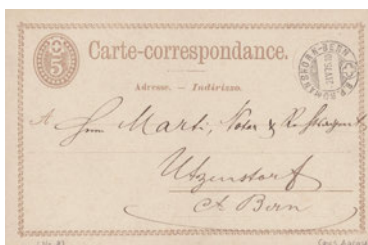 5
Carte-correspondance.
ROMANSHORN-BERN
Adresse. — Indirizzo.
Herrn Marti, Notar &
Utzenstorf
Ct. Bern